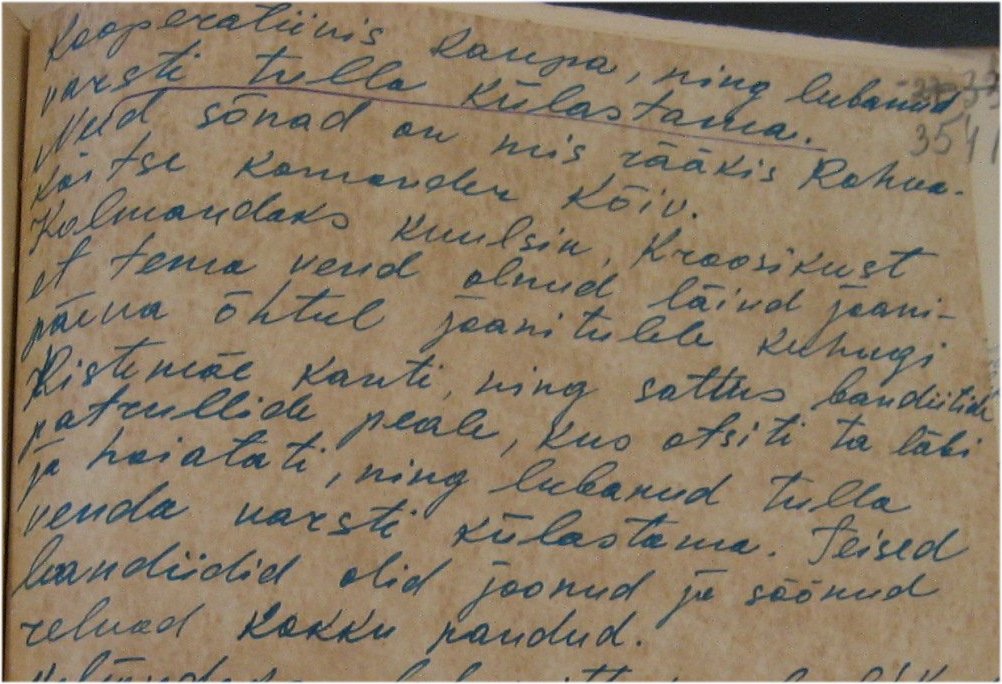 kooperatiivis kaupa, ning lubanud
varsti tulla külastama.
Need sõnad on mis rääkis Rahva-
kaitse komander Kõiv.
Kolmandaks kuulsin, Kroosikust
et tema vend olnud läind jaani-
päeva õhtul jaanitulele kuhugi
Ristemäe kanti, ning sattus bandiitide
patrullide peale, kus otsiti ta läbi
ja hoiatati, ning lubanud tulla
venda varsti külastama. Teised
bandiidid olid joonud ja söönud
relvad kokku pandud.
354